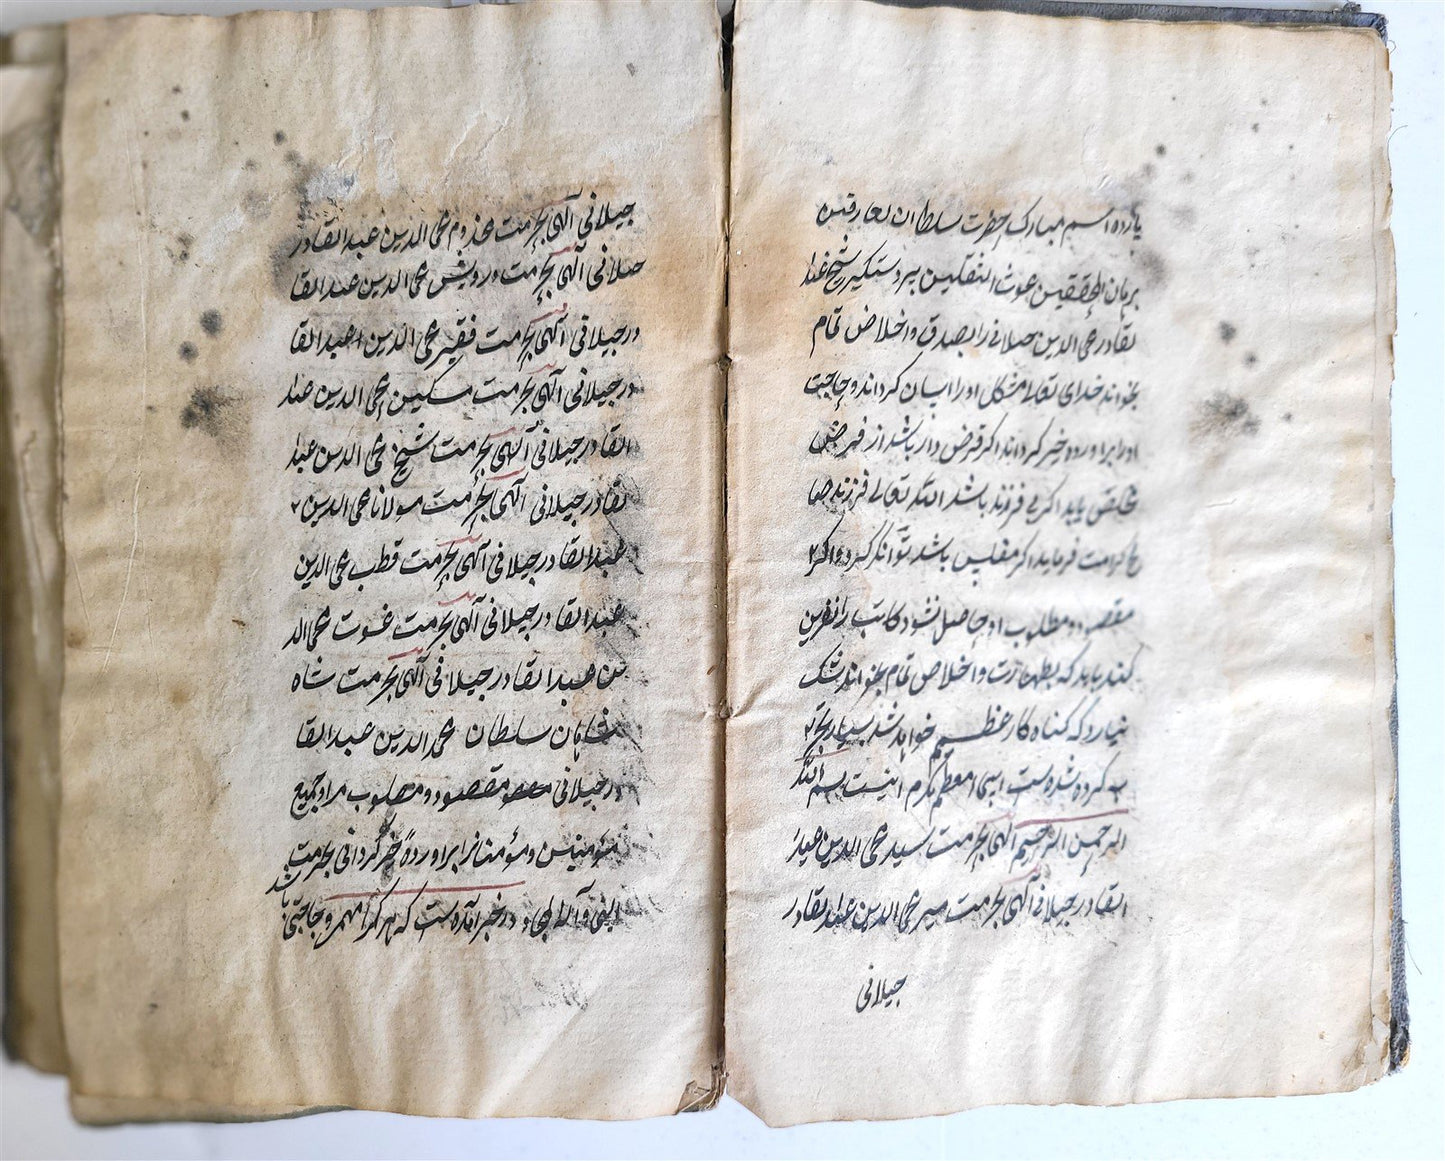 یازده اسم مبارک حضرت سلطان العارفین
برهان المحققین غوث الثقلین پیر دستگیر شیخ عبد
لقادر محی الدین جیلانی را بصدق و اخلاص تمام
بخواند خدای تعالا مشکل او را اسان کرداند و حاجت
اورا براورده خیر کرداند اکر قرض دار باشد از قرض
خلاص یابد اکر بی فرزند باشد الله تعالی فرزند صا
لح کرامت فرماید اکر مفلس باشد توانکر کردد واکر
مقصود و مطلوب او حاصل نشود کاتب را نفرین
کند باید که بطهارت و اخلاص تمام بخواند شک
نیارد که کناه کار عظیم خواهد شد بسیار تجربه
کرده شده ست اسمی معظم مکرم اینست بسم الله
الرحمن الرحیم الهی بحرمت سید محی الدین عبد
القادر جیلانی الهی بحرمت میر محی الدین عبد لقادر
جیلانی
جیلانی الهی بحرمت مخدوم محی الدین عبد القادر
جیلانی الهی بحرمت درویش محی الدین عبد القا
در جیلانی الهی بحرمت فقیر محی الدین عبد القا
در جیلانی الهی بحرمت مسکین محی الدین عبد
القادر جیلانی الهی بحرمت شیخ محی الدین عبد
لقادر جیلانی الهی بحرمت مولانا محی الدین
عبد القادر جیلانی الهی بحرمت قطب محی الدین
عبد القادر جیلانی الهی بحرمت غوث محی الد
ین عبد القادر جیلانی الهی بحرمت شاه
شاهان سلطان محی الدین عبد القا
در جیلانی مقصود و مطلوب مرا و جمیع
مؤمنین و مؤمنات را براورده خیر کردانی بحرمت
النبی و آله در خبر آمده ست که هر کرا مهم و حاجتی
باشد